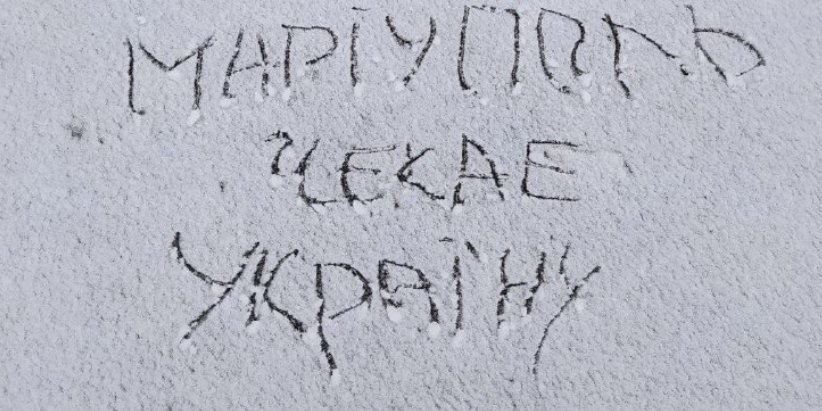 МАРІУПОЛЬ
ЧЕКАЕ
УКРАЇНУ